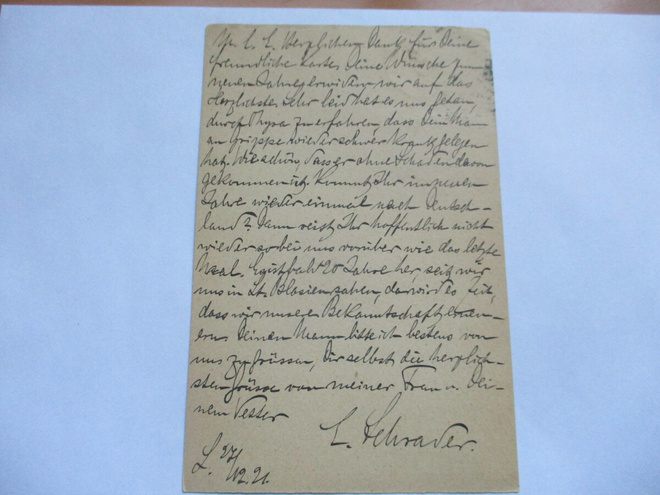 L. E. Herzlichen Dank für Deine
freundliche Karte. Deine Wünsche zum
neuen Jahre erwidern wir auf das
Herzlichste. Sehr leid hat es uns getan,
durch Thyra zu erfahren, dass Dein Mann
an Grippe wieder schwer krank gelegen
hat. Wie schön, dass er ohne Schaden davon
gekommen ist. Kommt Ihr im neuen
Jahre wieder einmal nach Deutsch-
land? Dann reist Ihr hoffentlich nicht
wieder so bei uns vorüber wie das letzte
Mal. Es ist bald 20 Jahre her, seit wir
uns in St. Blasien sahen, da wird es Zeit,
dass wir unsere Bekanntschaft erneu-
ern. Deinen Mann bitte ich bestens von
uns zu grüssen, Dir selbst die herzlich-
sten Grüsse von meiner Frau u. Dei-
nem Vetter
E. Schrader.
L. 27/12.21.